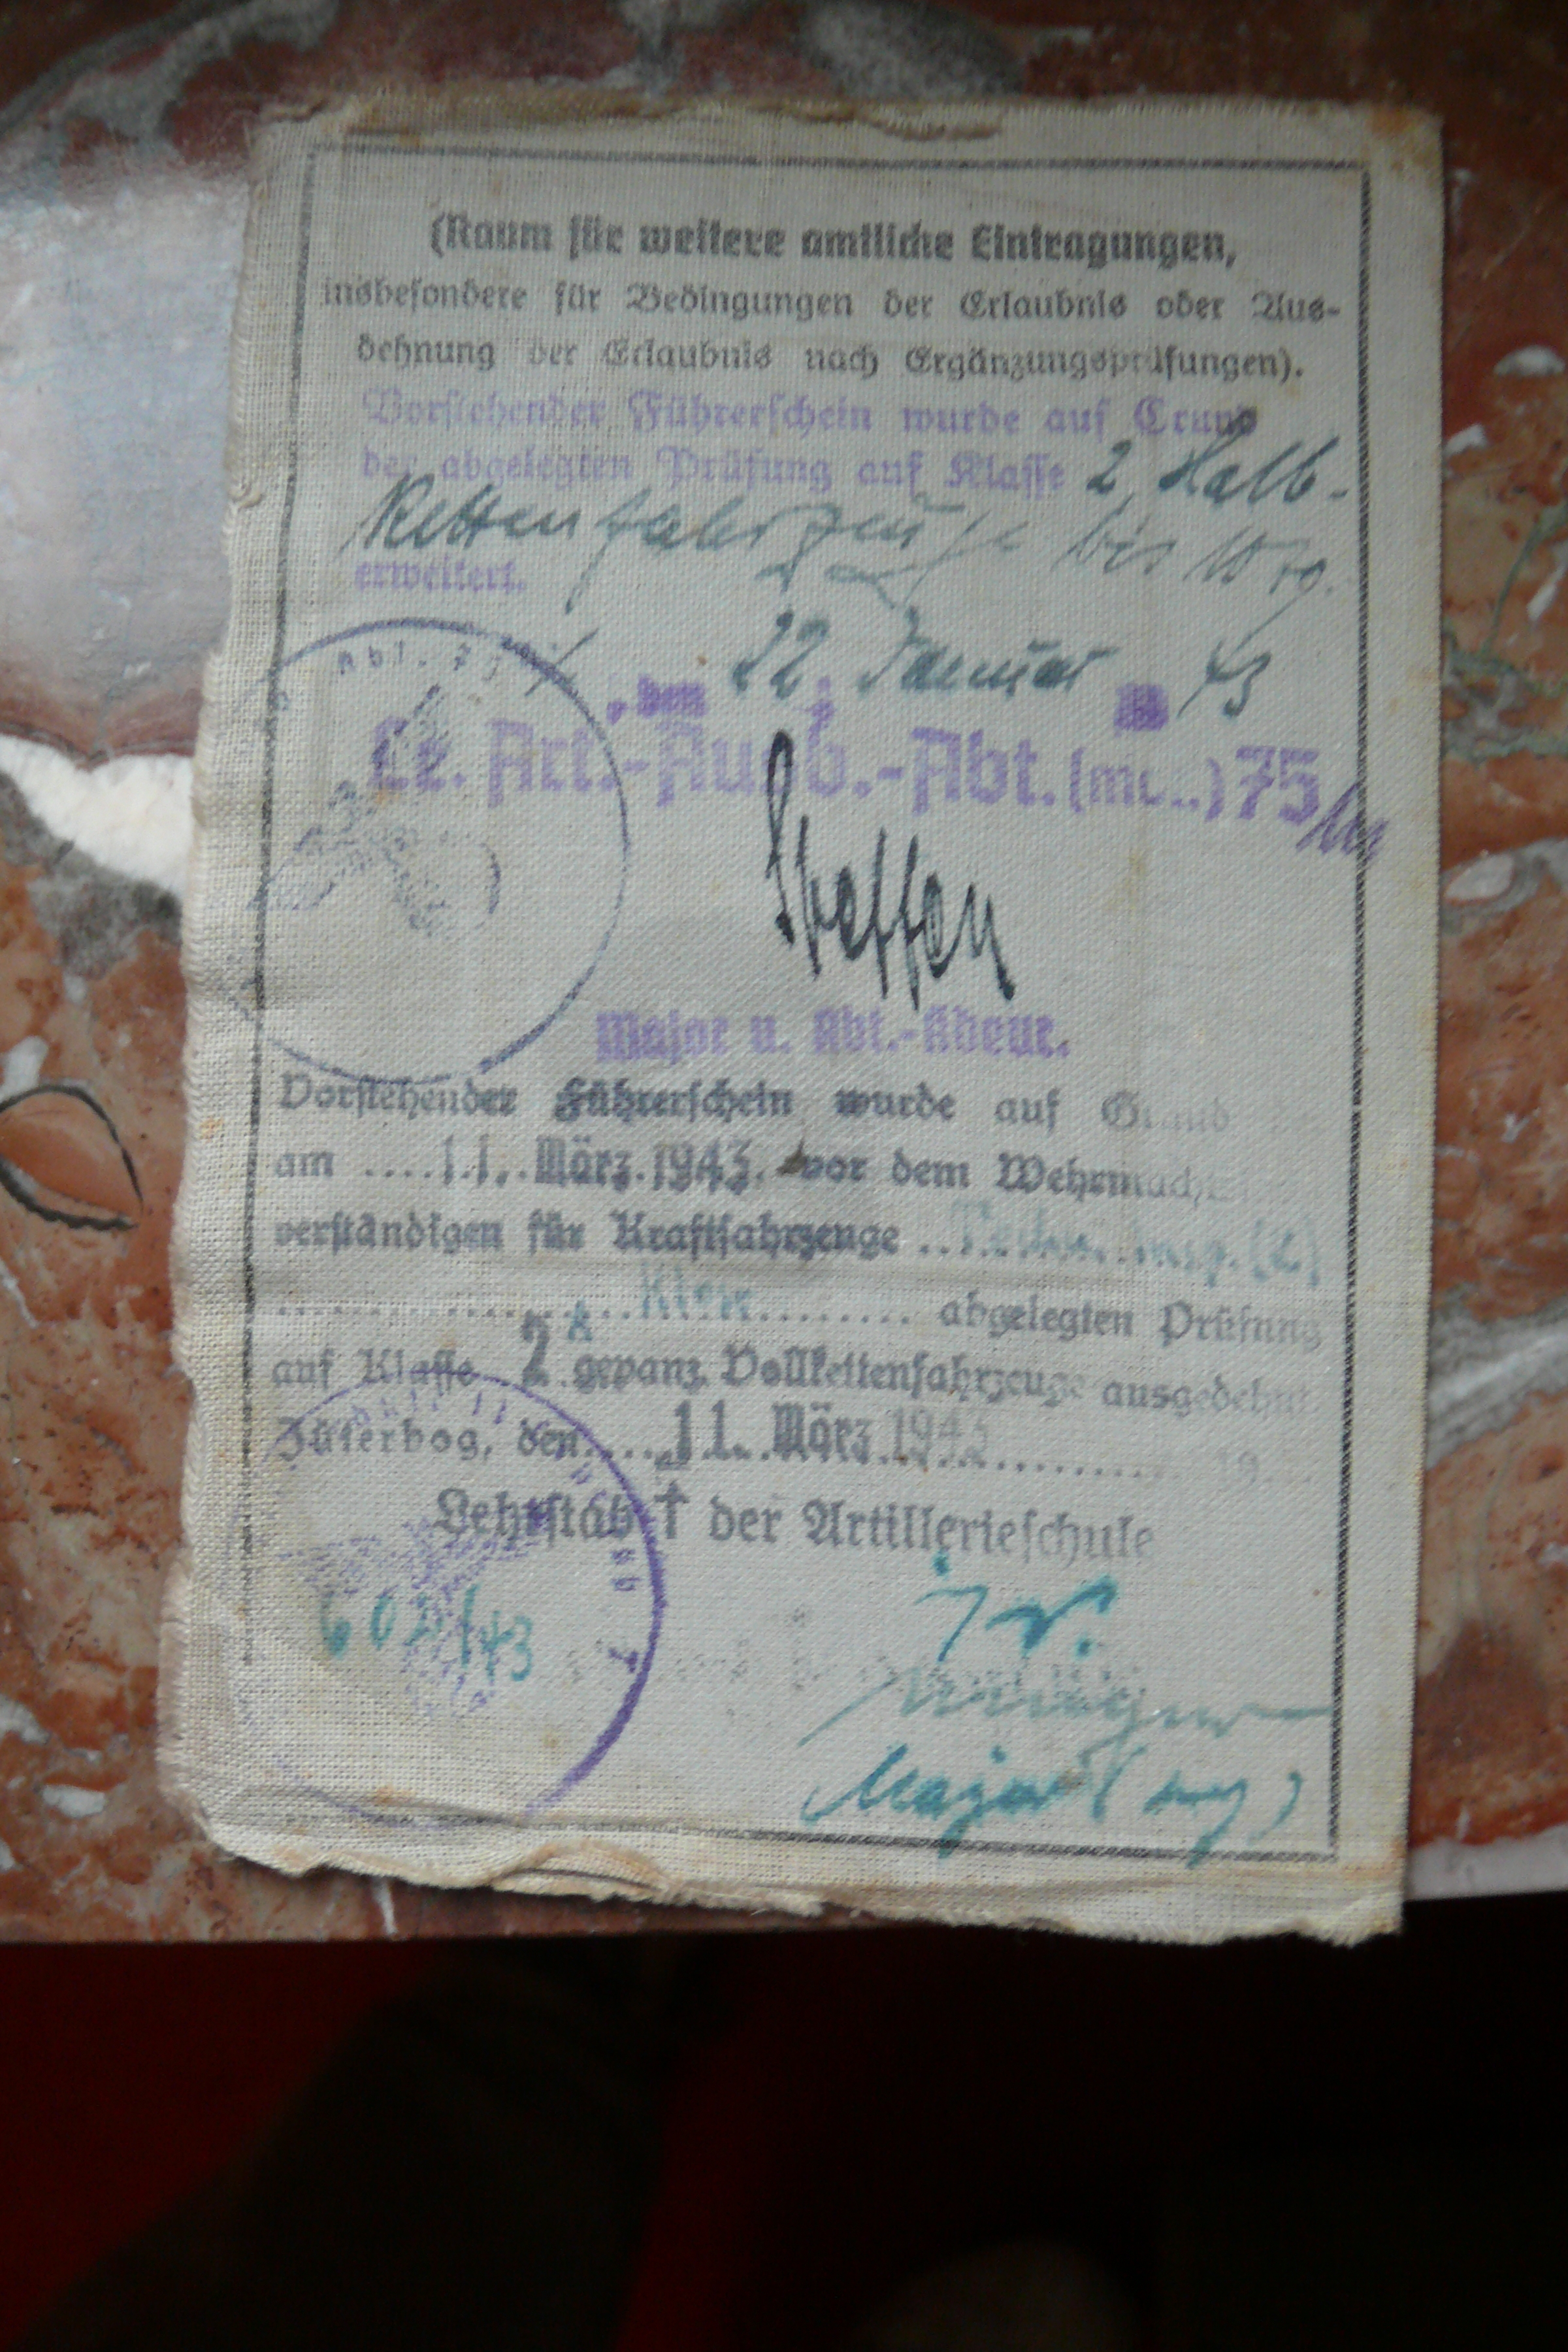 (Raum für weitere amtliche Eintragungen,
insbesondere für Bedingungen der Erlaubnis oder Aus-
dehnung der Erlaubnis nach Ergänzungsprüfungen).
Vorstehender Führerschein wurde auf Grund
der abgelegten Prüfung auf Klasse 2 Halb-
Kettenfahrzeuge bis 10 to.
erweitert.
, den 22 Januar 43
Le. Art.-Ausb.-Abt. (mot.) 75
Steffen
Major u. Abt.-Kdeur.
Vorstehender Führerschein wurde auf Grund
am 11. März 1943 vor dem
verständigen für Kraftfahrzeuge
abgelegten Prüfung
auf Klasse 2 gepanz. Vollkettenfahrzeuge ausgedehnt.
Jüterbog, den 11. März 1943 19
Lehrstab der Artillerieschule
J.V.
Major